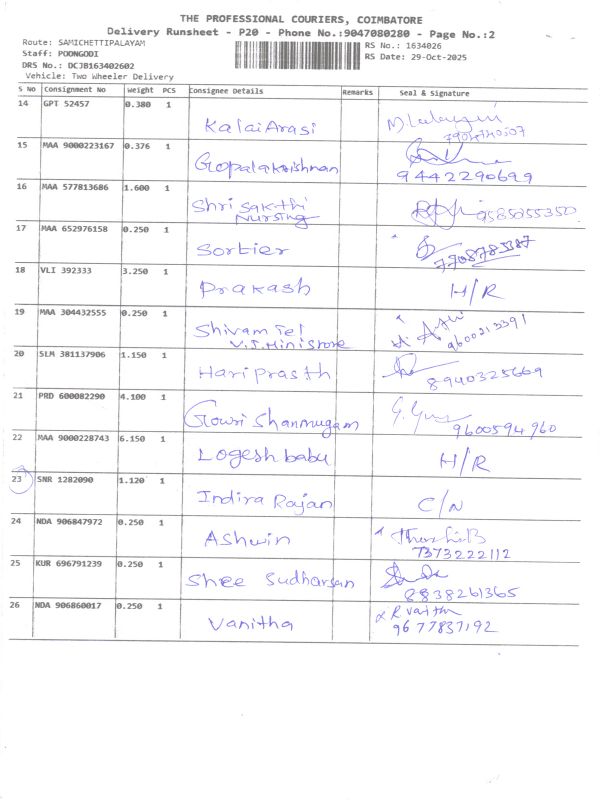 THE PROFESSIONAL COURIERS, COIMBATORE
Delivery Runsheet - P20 - Phone No.:9047080280 - Page No.:2
Route: SAMICHETTIPALAYAM
RS No.: 1634026
Staff: POONGODI
RS Date: 29-Oct-2025
DRS No.: DCJB163402602
Vehicle: Two Wheeler Delivery
S No Consignment No Weight PCS Consignee Details Remarks Seal & Signature
14 GPT 52457 0.380 1
KalaiArasi
15 MAA 9000223167 0.376 1
Gopalakrishnan
9442290699
16 MAA 577813686 1.600 1
Shri Sakthi
Nursing
9585055350
17 MAA 652976158 0.250 1
Sortier
18 VLI 392333 3.250 1
Prakash H/R
19 MAA 304432555 0.250 1
Shivam Tel
V.J.Ministore
9600213391
20 SLM 381137906 1.150 1
Hari Prasth
8940325669
21 PRD 600082290 4.100 1
Gowri Shanmugam
9600594960
22 MAA 9000228743 6.150 1
Logesh babu H/R
23 SNR 1282090 1.120 1
Indira Rajan C/N
24 NDA 906847972 0.250 1
Ashwin
7373222112
25 KUR 696791239 0.250 1
Shee Sudharsan
8838261365
26 NDA 906860017 0.250 1
Vanitha
9677837192